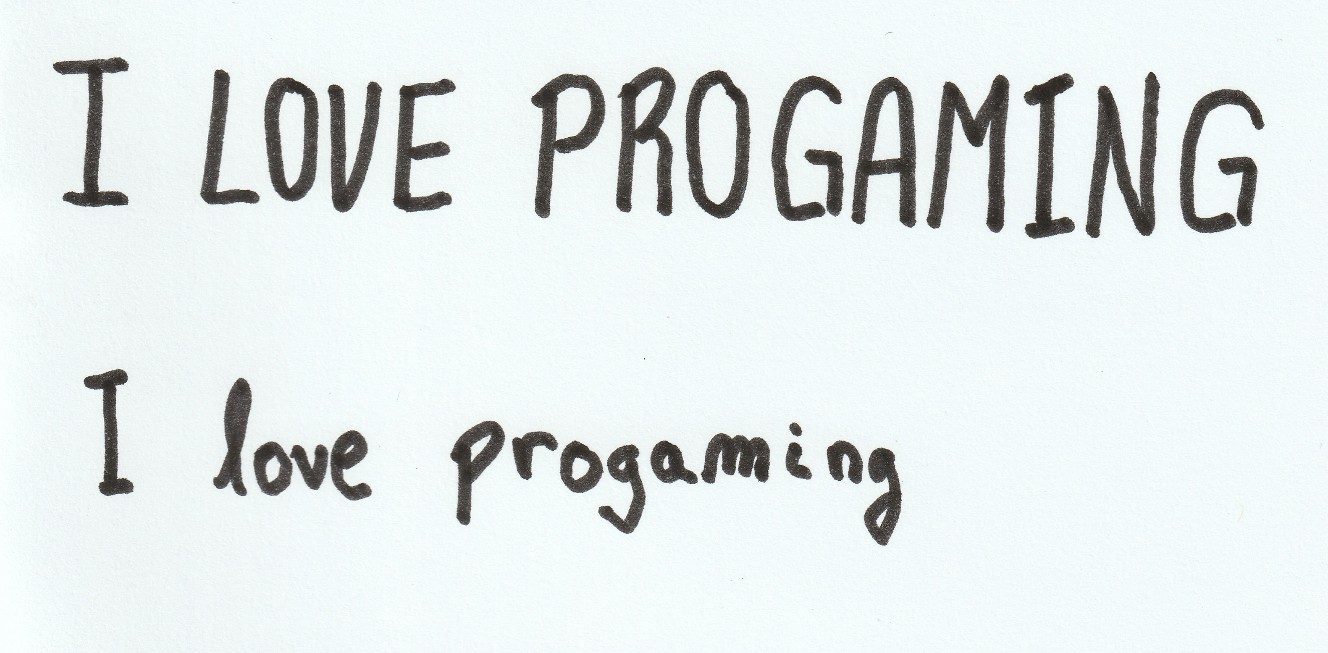 I LOVE PROGAMING
I love progaming